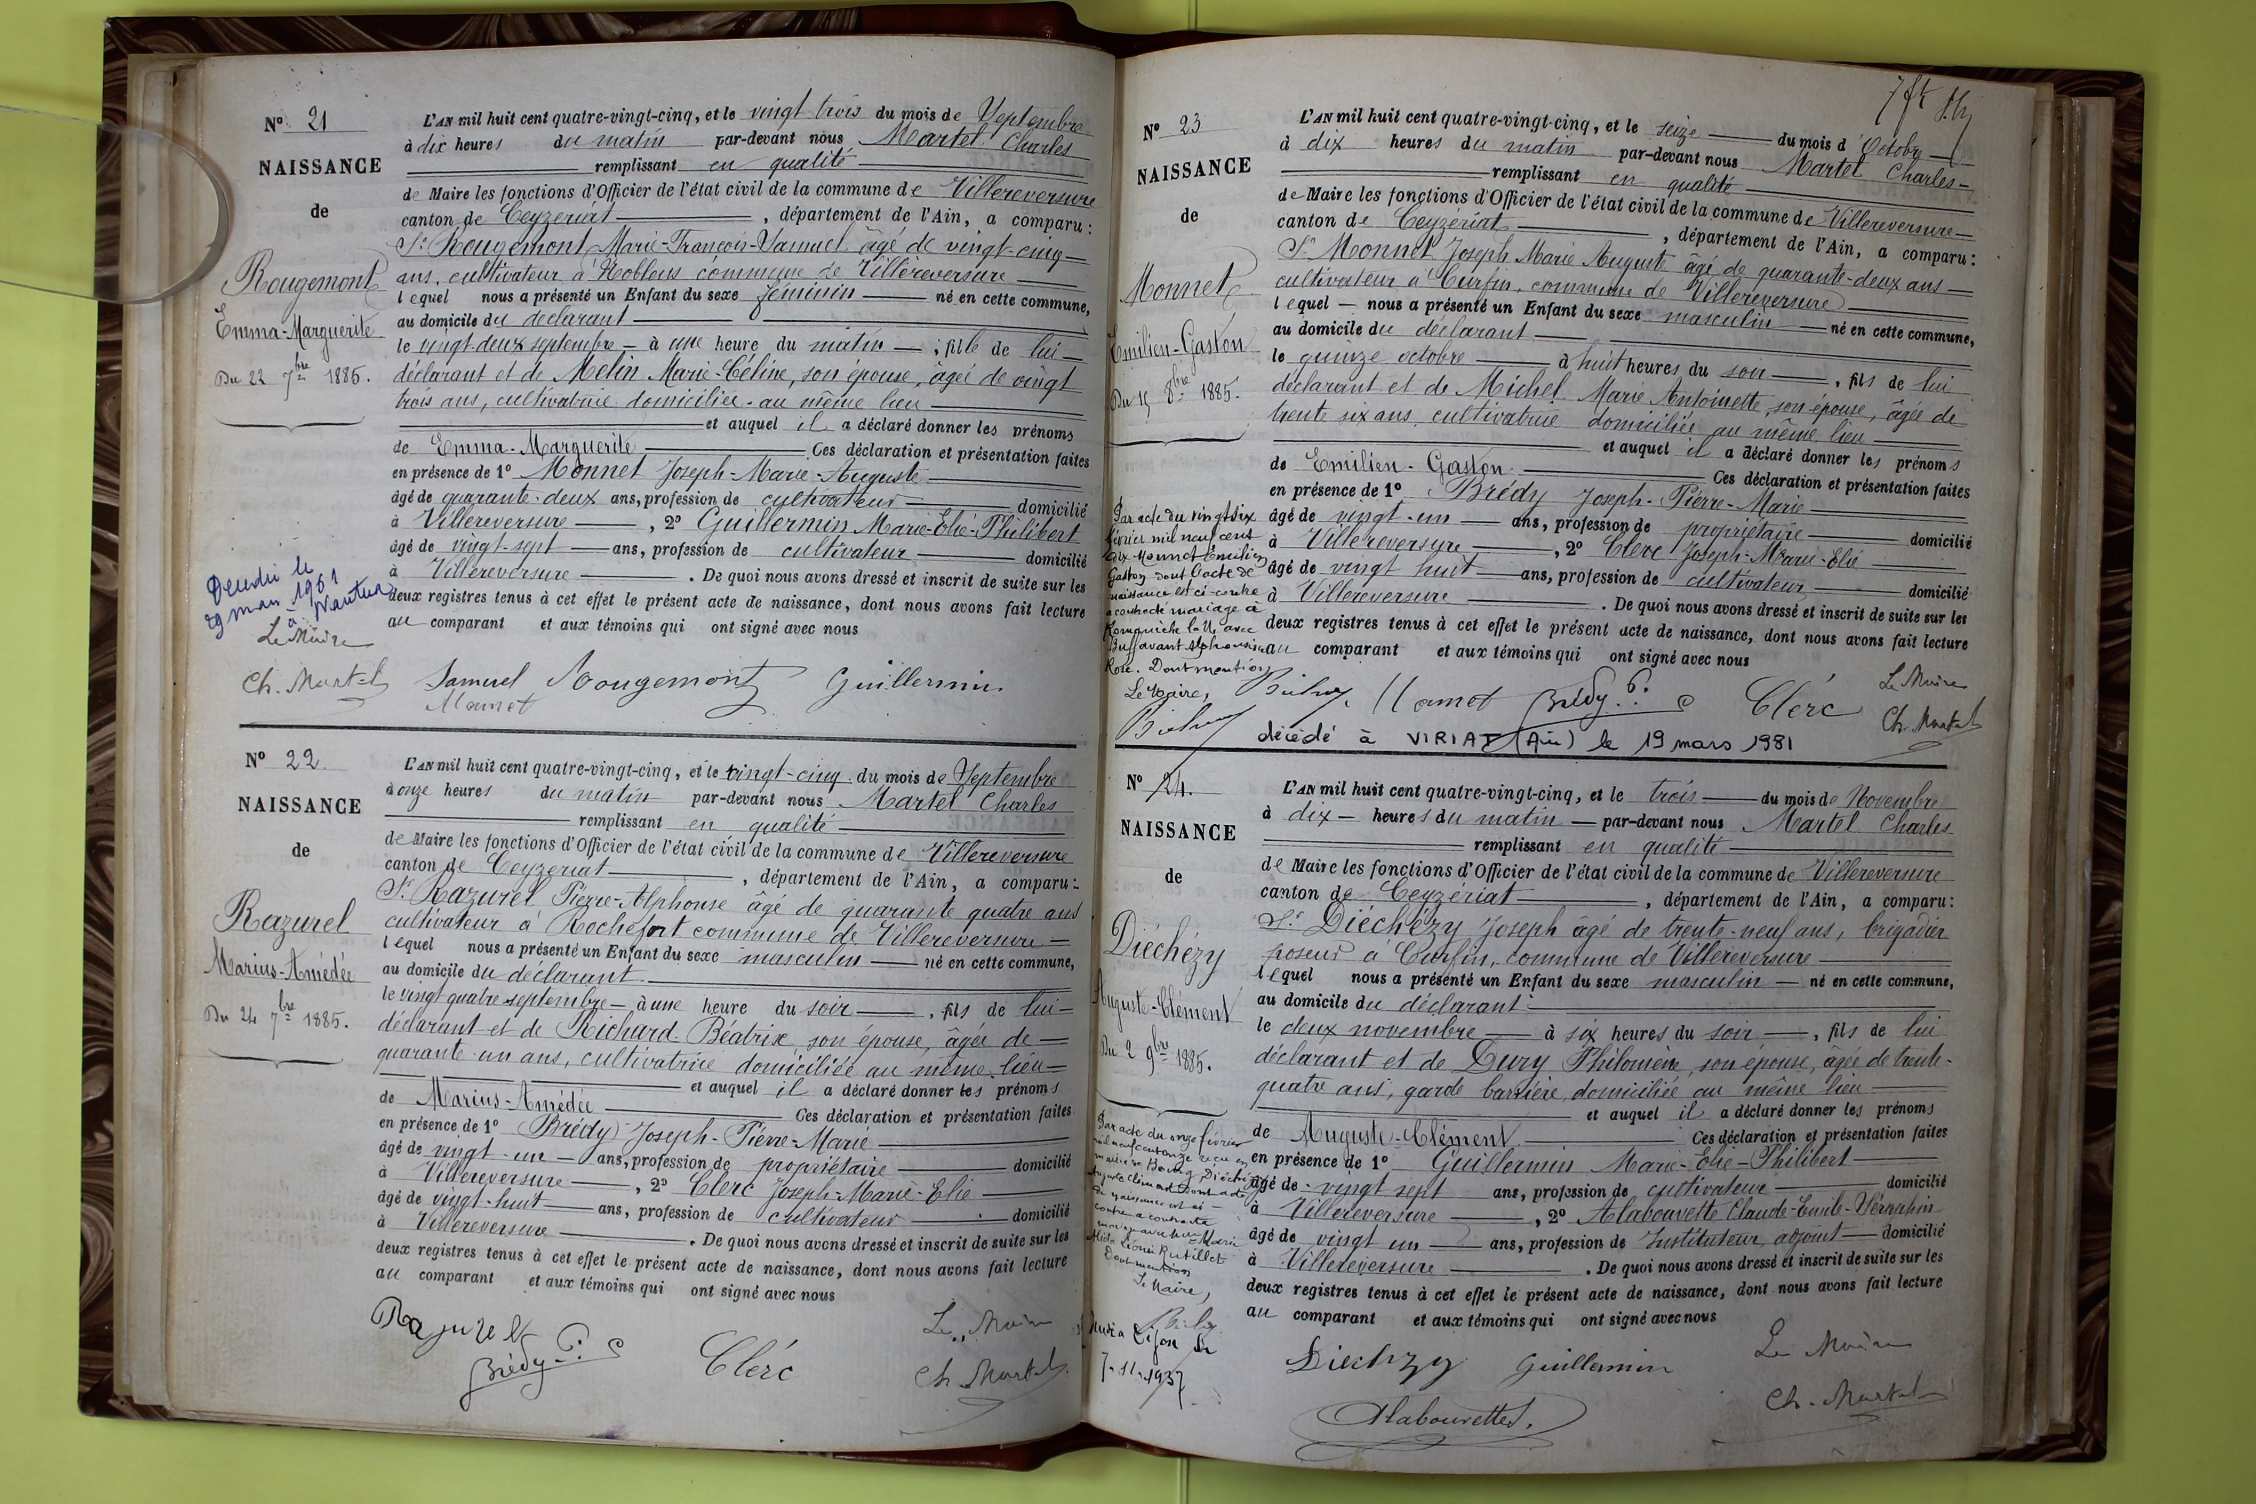 N° 21
NAISSANCE
de
Rougemont
Emma-Marguerite
Du 22 7bre 1885.
Décédée le
29 mars 1961
à Nantua
Le Maire
L'AN mil huit cent quatre-vingt-cinq, et le vingt trois du mois de Septembre
à dix heures du matin par-devant nous Martel Charles
remplissant en qualité
de Maire les fonctions d'Officier de l'état civil de la commune de Villereversure
canton de Ceyzériat, département de l'Ain, a comparu:
Sr Rougemont Marie-François-Samuel âgé de vingt-cinq
ans, cultivateur à Noblens commune de Villereversure
lequel nous a présenté un Enfant du sexe féminin né en cette commune,
au domicile du déclarant
le vingt-deux septembre à une heure du matin, fille de lui
déclarant et de Melin Marie-Céline, son épouse, âgée de vingt
trois ans, cultivatrice domiciliée au même lieu
et auquel il a déclaré donner les prénoms
de Emma-Marguerite Ces déclaration et présentation faites
en présence de 1° Monnet Joseph-Marie-Auguste
âgé de quarante-deux ans, profession de cultivateur domicilié
à Villereversure, 2° Guillermin Marie-Elie-Philibert
âgé de vingt-sept ans, profession de cultivateur domicilié
à Villereversure. De quoi nous avons dressé et inscrit de suite sur les
deux registres tenus à cet effet le présent acte de naissance, dont nous avons fait lecture
au comparant et aux témoins qui ont signé avec nous
Ch. Martel Samuel Rougemont Guillermin
Monnet
N° 22
NAISSANCE
de
Razurel
Marius-Amédée
Du 24 7bre 1885.
L'AN mil huit cent quatre-vingt-cinq, et le vingt-cinq du mois de Septembre
à onze heures du matin par-devant nous Martel Charles
remplissant en qualité
de Maire les fonctions d'Officier de l'état civil de la commune de Villereversure
canton de Ceyzeriat, département de l'Ain, a comparu:
Sr Razurel Pierre-Alphonse âgé de quarante quatre ans
cultivateur à Rochefort commune de Villereversure
lequel nous a présenté un Enfant du sexe masculin né en cette commune,
au domicile du déclarant
le vingt quatre septembre à une heure du soir, fils de lui
déclarant et de Richard Béatrix son épouse, âgée de
quarante-un ans, cultivatrice domiciliée au même lieu
et auquel il a déclaré donner les prénoms
de Marius-Amédée Ces déclaration et présentation faites
en présence de 1° Brédy Joseph-Pierre-Marie
âgé de vingt-un ans, profession de propriétaire domicilié
à Villereversure, 2° Clerc Joseph-Marie-Elie
âgé de vingt-huit ans, profession de cultivateur domicilié
à Villereversure. De quoi nous avons dressé et inscrit de suite sur les
deux registres tenus à cet effet le présent acte de naissance, dont nous avons fait lecture
au comparant et aux témoins qui ont signé avec nous
Razurel Le Maire
Brédy Clerc Ch. Martel
N° 23
NAISSANCE
de
Monnet
Emilien-Gaston
Du 15 8bre 1885.
Par acte du vingt six
février mil neuf cent
dix Monnet Emilien
Gaston dont l'acte de
naissance est ci-contre
a contracté mariage à
avec
Buffavant Alphonsine
Rose. Dont mention
Le Maire,
L'AN mil huit cent quatre-vingt-cinq, et le seize du mois d'Octobre
à dix heures du matin par-devant nous Martel Charles
remplissant en qualité
de Maire les fonctions d'Officier de l'état civil de la commune de Villereversure
canton de Ceyzériat, département de l'Ain, a comparu:
Sr Monnet Joseph Marie Auguste âgé de quarante-deux ans
cultivateur à Curfin, commune de Villereversure
lequel nous a présenté un Enfant du sexe masculin né en cette commune,
au domicile du déclarant
le quinze octobre à huit heures du soir, fils de lui
déclarant et de Michel Marie Antoinette son épouse, âgée de
trente six ans, cultivatrice domiciliée au même lieu
et auquel il a déclaré donner les prénoms
de Emilien-Gaston Ces déclaration et présentation faites
en présence de 1° Brédy Joseph-Pierre-Marie
âgé de vingt-un ans, profession de propriétaire domicilié
à Villereversure, 2° Clerc Joseph-Marie-Elie
âgé de vingt huit ans, profession de cultivateur domicilié
à Villereversure. De quoi nous avons dressé et inscrit de suite sur les
deux registres tenus à cet effet le présent acte de naissance, dont nous avons fait lecture
au comparant et aux témoins qui ont signé avec nous
Monnet Brédy Clerc Le Maire
Ch. Martel
décédé à VIRIAT (Ain) le 19 mars 1981
N° 24.
NAISSANCE
de
Diéchézy
Auguste-Clément
Du 2 9bre 1885.
Par acte du onze février
mil neuf cent onze reçu en
mairie de Bourg, Diéchézy
Auguste Clément dont acte
de naissance est ci-
contre a contracté
mariage avec Marie
Léonie Rutillet
Dont mention
Le Maire,
Dijon le
7.11.1937
L'AN mil huit cent quatre-vingt-cinq, et le trois du mois de Novembre
à dix heures du matin par-devant nous Martel Charles
remplissant en qualité
de Maire les fonctions d'Officier de l'état civil de la commune de Villereversure
canton de Ceyzériat, département de l'Ain, a comparu:
Sr Diéchézy Joseph âgé de trente-neuf ans, brigadier
poseur à Curfin, commune de Villereversure
lequel nous a présenté un Enfant du sexe masculin né en cette commune,
au domicile du déclarant
le deux novembre à six heures du soir, fils de lui
déclarant et de Cury Philomène, son épouse, âgée de trente-
quatre ans, garde barrière, domiciliée au même lieu
et auquel il a déclaré donner les prénoms
de Auguste-Clément Ces déclaration et présentation faites
en présence de 1° Guillermin Marie-Elie-Philibert
âgé de vingt sept ans, profession de cultivateur domicilié
à Villereversure, 2° Alabouvette Claude-Emile-Séraphin
âgé de vingt un ans, profession de Instituteur adjoint domicilié
à Villereversure. De quoi nous avons dressé et inscrit de suite sur les
deux registres tenus à cet effet le présent acte de naissance, dont nous avons fait lecture
au comparant et aux témoins qui ont signé avec nous
Diechzy Guillermin Le Maire
Alabouvette Ch. Martel